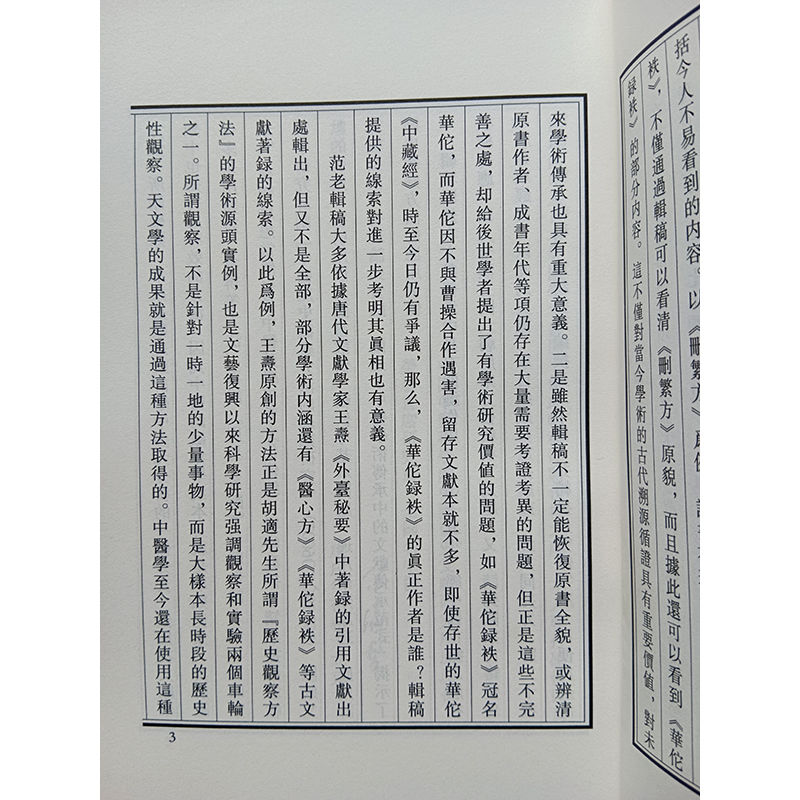 括今人不易看到的内容。以《刪繁方》爲例，
袟》，不僅通過輯稿可以看清《刪繁方》原貌，而且據此還可以看到《華佗
録袟》的部分内容。這不僅對當今學術的古代溯源循證具有重要價值，對未
來學術傳承也具有重大意義。二是雖然輯稿不一定能恢復原書全貌，或辨清
原書作者、成書年代等項仍存在大量需要考證考異的問題，但正是這些不完
善之處，却給後世學者提出了有學術研究價值的問題，如《華佗録袟》冠名
華佗，而華佗因不與曹操合作遇害，留存文獻本就不多，即使存世的華佗
《中藏經》，時至今日仍有爭議，那么，《華佗録袟》的眞正作者是誰？輯稿
提供的線索對進一步考明其眞相也有意義。
范老輯稿大多依據唐代文獻學家王燾《外臺秘要》中著録的引用文獻出
處輯出，但又不是全部，部分學術内涵還有《醫心方》《華佗録袟》等古文
獻著録的線索。以此爲例，王燾原創的方法正是胡適先生所謂『歷史觀察方
法』的學術源頭實例，也是文藝復興以來科學研究强調觀察和實驗兩個車輪
之一。所謂觀察，不是針對一時一地的少量事物，而是大樣本長時段的歷史
性觀察。天文學的成果就是通過這種方法取得的。中醫學至今還在使用這種
3